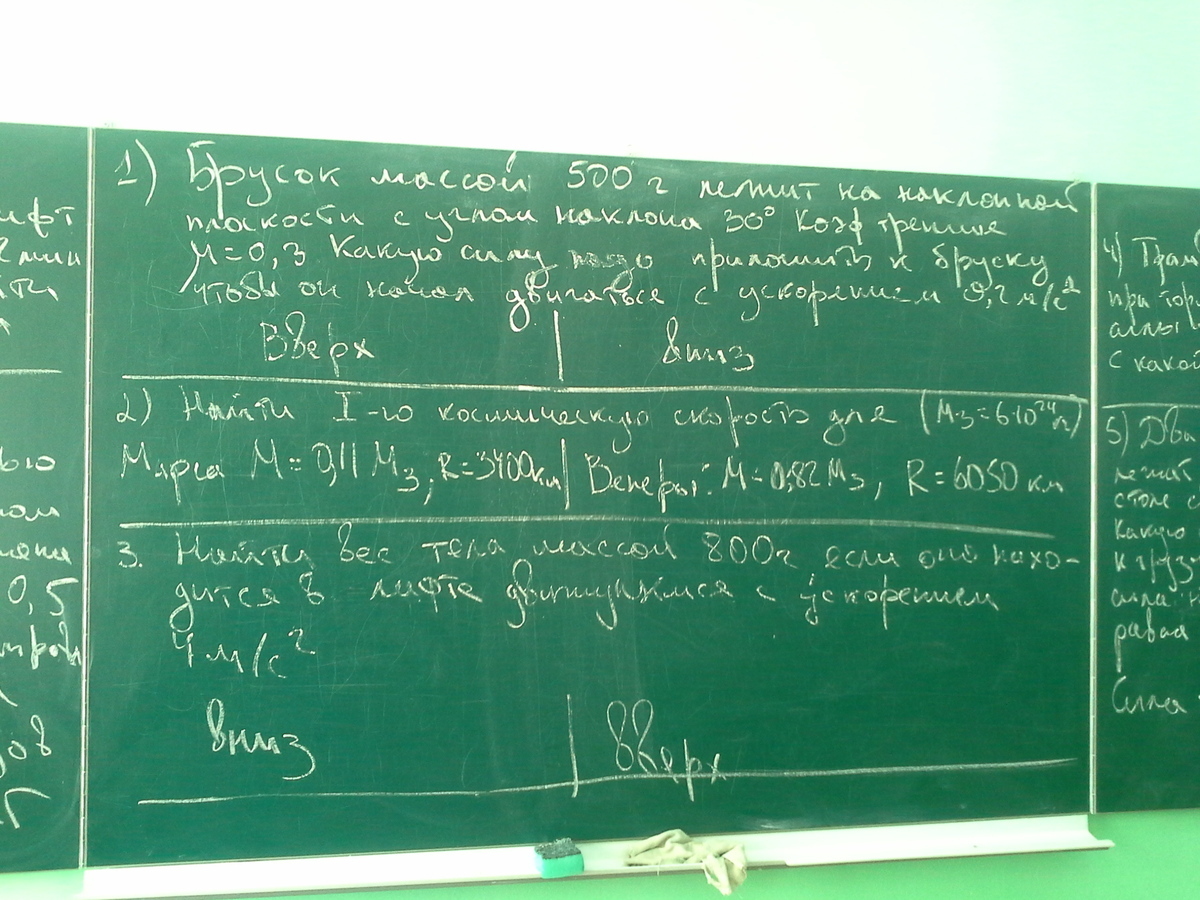 ифт
2 мин
1) Брусок массой 500 г лежит на наклонной
плоскости с углом наклона 30° Коэф трения
μ=0,3 Какую силу надо приложить к бруску
чтобы он начал двигаться с ускорением 0,2 м/с²
Вверх | вниз
2) Найти I-го космическую скорость для (Mз=6·10²⁴
Марса M=0,11 Mз, R=3400км | Венеры: M=0,82Mз, R=6050 км
3. Найти вес тела массой 800г если оно нахо-
дится в лифте движущимся с ускорением
4 м/с²
вниз | вверх
0,5
4) Трам
при тор
с какой
5) Два
лежат
столе
какую
к груз
сила
равна
Сила